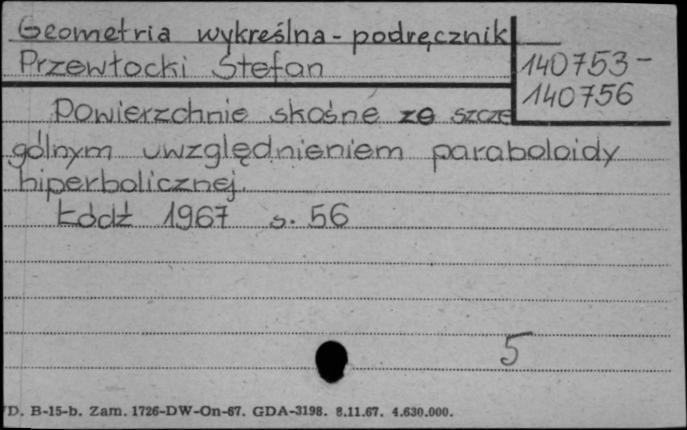 Geometria wykreślna - podręcznik
Przewłocki Stefan
140753 -
140756
Powierzchnie skośne ze szcze
gólnym uwzględnieniem paraboloidy
hiperbolicznej.
Łódź 1967 s. 56
5
D. B-15-b. Zam. 1726-DW-On-67. GDA-3198. 8.11.67. 4.630.000.